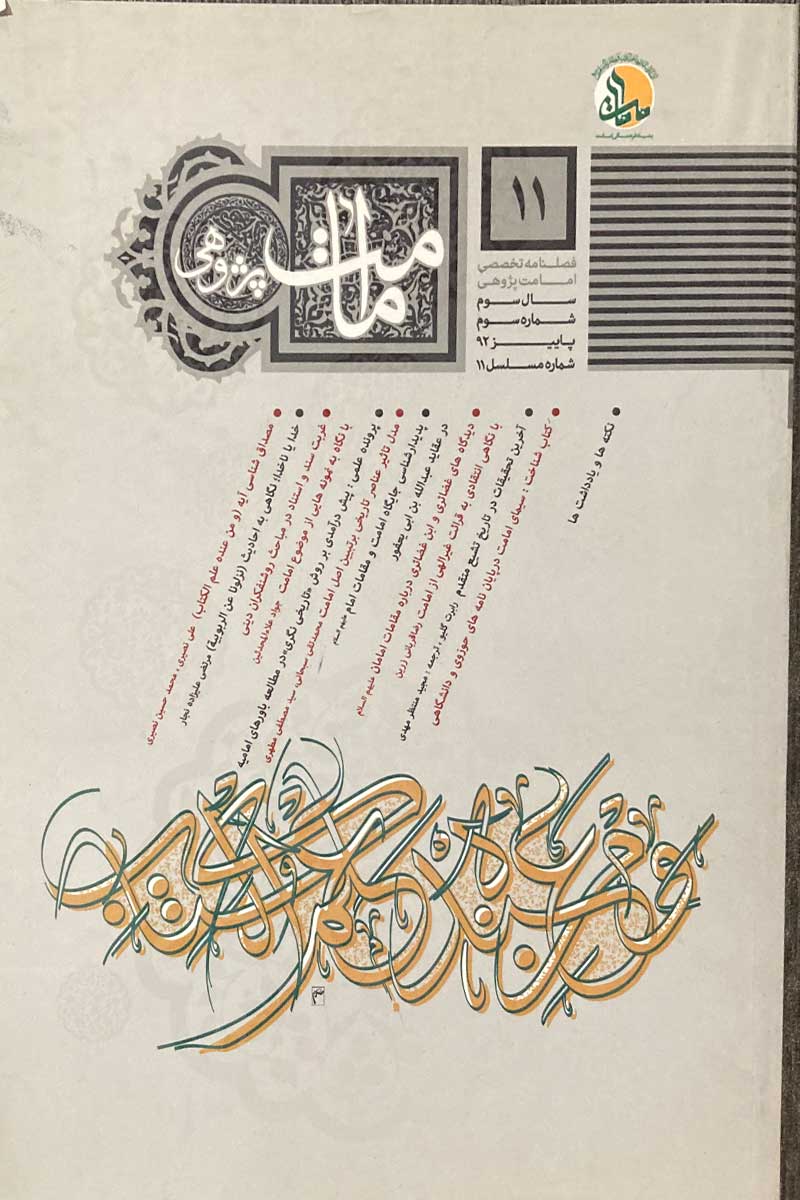 بنیاد فرهنگی امامت
۱۱
امامت
پژوهی
فصلنامه تخصصی
امامت پژوهی
سال سوم
شماره سوم
پاییز ۹۲
شماره مسلسل ۱۱
مصداق شناسی آیه (و من عنده علم الکتاب) علی نصیری، محمد حسین نصیری
خدا یا ناخدا؛ نگاهی به احادیث (نزلونا عن الربوبیة) مرتضی علیزاده نجار
غربت سند و استناد در مباحث روشنفکران دینی
با نگاه به نمونه هایی از موضوع امامت جواد علاءالمحدثین
پرونده علمی: پیش درآمدی بر روش «تاریخی نگری» در مطالعه باورهای امامیه
مدل تاثیر عناصر تاریخی بر تبیین اصل امامت محمدتقی سبحانی، سید مصطفی مطهری
پدیدارشناسی جایگاه امامت و مقامات امام علیهم السلام
در عقاید عبدالله بن ابی یعفور
دیدگاه های غضائری و ابن غضائری درباره مقامات امامان علیهم السلام
با نگاهی انتقادی به قرائت غیرالهی از امامت رضا قربانی زرین
آخرین تحقیقات در تاریخ تشیع متقدم رابرت گلیو، ترجمه: مجید منتظر مهدی
کتاب شناخت: سیمای امامت در پایان نامه های حوزوی و دانشگاهی
نکته ها و یادداشت ها
ومن عنده علم الکتاب